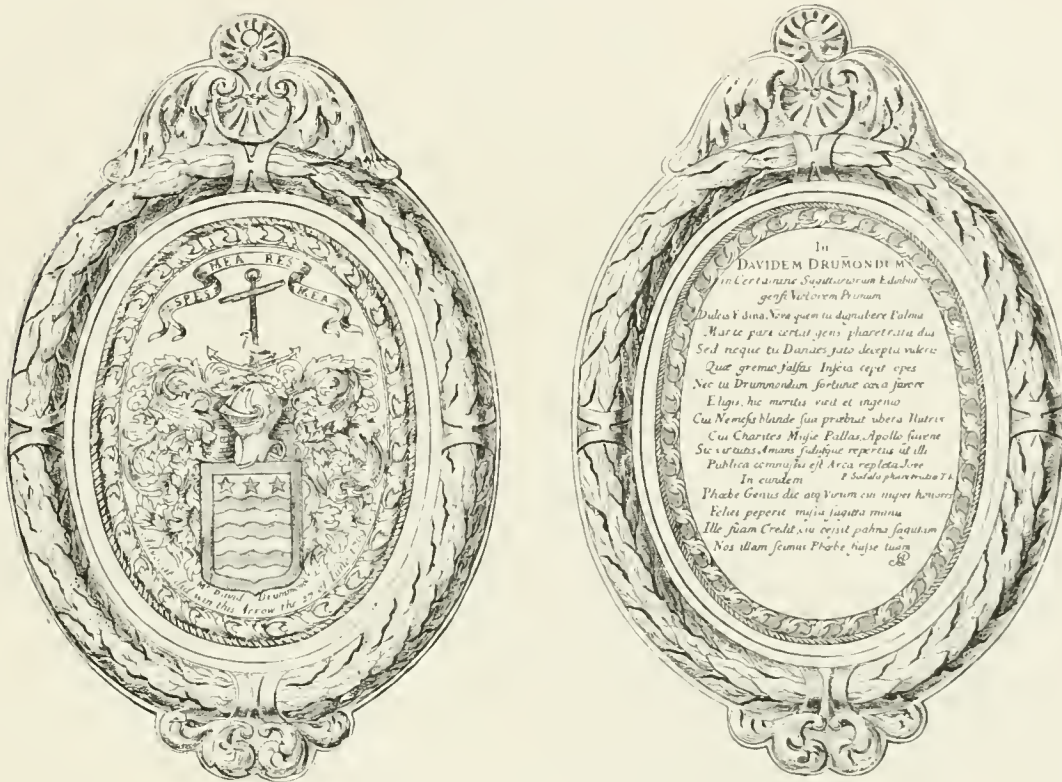 SPES MEA RES MEA
Mr David Drumm
win this Arrow the 27
In
DAVIDEM DRUM̄ONDUM
in Certamine Sagittariorum Edinbur
gensi Victorem Primum
Dulcis Edina, Nova quem tu dignabere Palma
Marte pari certat gens pharetrata diu
Sed neque tu Danaes fato decepta videris
Quæ gremio falsas Inscia cepit opes
Nec tu Drummondum fortunæ cæca favore
Eligis, hic meritis vicit et ingenio
Cui Nemesis blande sua præbuit ubera Nutrix
Cui Charites Musæ Pallas, Apollo favene
Sic virtutis Amans fidusque repertus ut illi
Publica commissa est Arca repleta Jove
In eundem
P Sodalis pharetratus
Phœbe Genus dic atq Virum cui nuper honores
Felici peperit missa sagitta manu
Ille suam Credit, cui cessit palma sagittam
Nos illam scimus Phœbe fuisse tuam